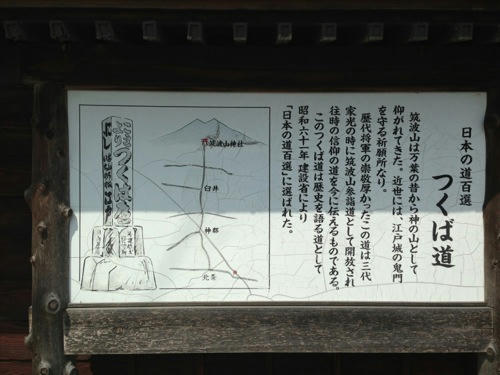 日本の道百選
つくば道
筑波山は万葉の昔から神の山として
仰がれてきた。近世には、江戸城の鬼門
を守る祈願所なり。
歴代将軍の崇敬厚かったこの道は三代
家光の時に筑波山参詣道として開放され
往時の信仰の道を今に伝えるものである。
このつくば道は歴史を語る道として
昭和六十一年建設省により
「日本の道百選」に選ばれた。
筑波山神社
臼井
神郡
北条
つくば